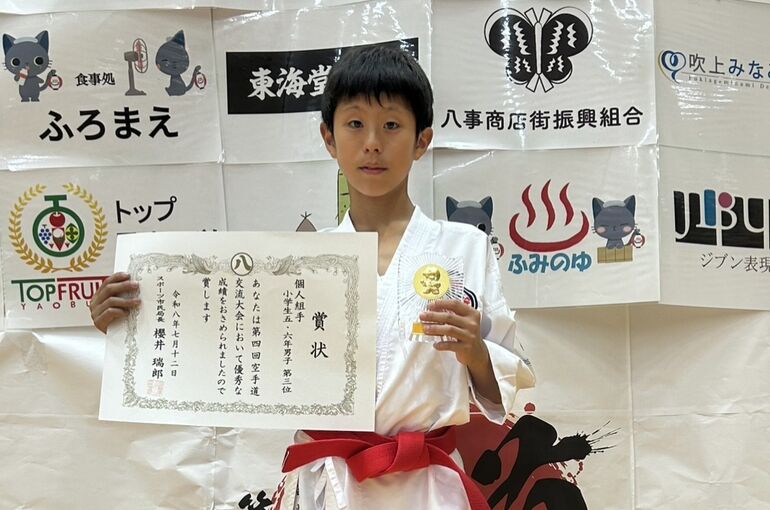 食事処
ふろまえ
東海堂
八事商店街振興組合
吹上みなみ
トップ
TOPFRUI
YAOBU
ふみのゆ
JIBU
ジブン表現
八
賞状
個人組手
小学生五・六年男子 第三位
あなたは第四回空手道
交流大会において優秀な
成績をおさめられましたので
賞します
令和八年七月十二日
スポーツ市民局長 櫻井 瑞郎